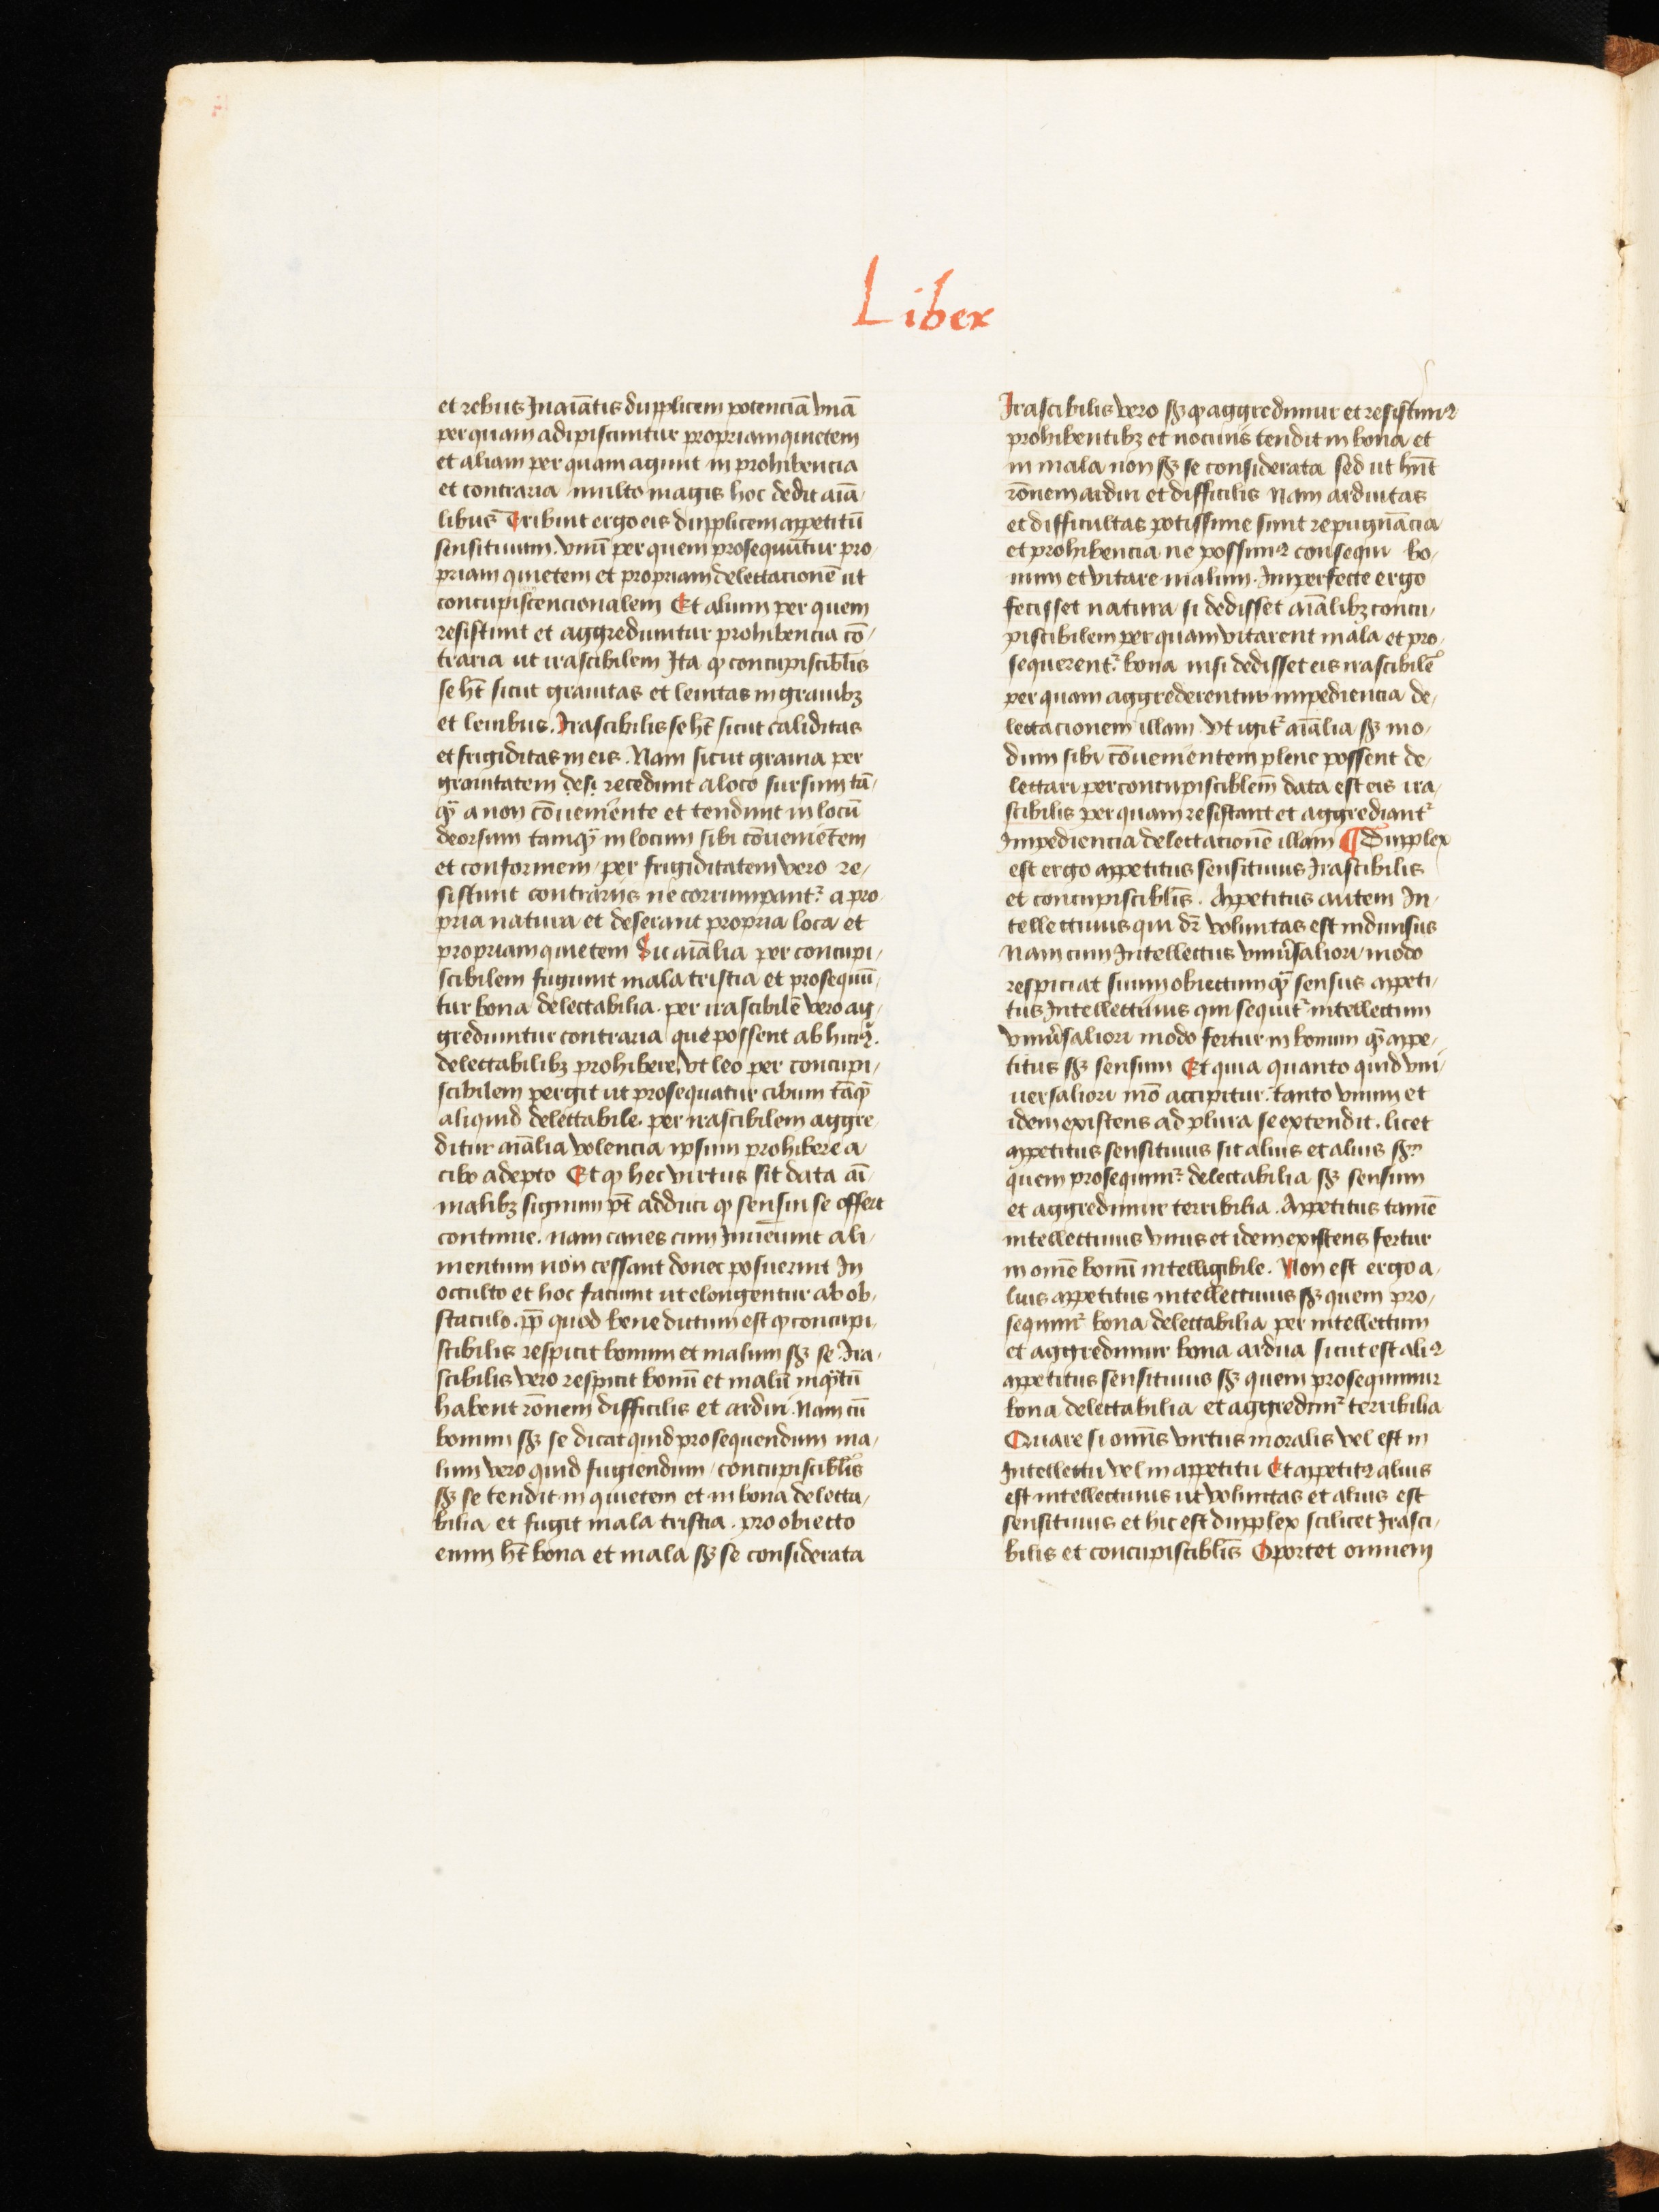 Liber
et rebus Inaīatis dupplicem potenciā vnā
per quam adipiscuntur propriam quietem
et aliam per quam agunt in prohibencia
et contraria multo magis hoc dedit aīa-
libus Tribuit ergo eis dupplicem appetitū
sensitiuum. vnū per quem prosequūtur pro-
priam quietem et propriam delectacionē ut
concupiscencionalem Et alium per quem
resistunt et aggrediuntur prohibencia cō-
traria ut irascibilem Ita qꝫ concupiscibl̄is
se hēt sicut grauitas et leuitas in grauibꝫ
et leuibus. Irascibilis se hēt sicut caliditas
et frigiditas in eis. Nam sicut grauia per
grauitatem des. recedunt a loco sursum tā-
qꝫ̄ a non cōueniente et tendunt in locū
deorsum tamqꝫ̄ in locum sibi cōuenietem
et conformem per frigiditatem vero re-
sistunt contrariis ne corrumpantᷣ a pro-
pria natura et deserant propria loca et
propriam quietem Sic aīalia per concupi-
scibilem fugiunt mala tristia et prosequū-
tur bona delectabilia. per irascibilē vero ag-
grediuntur contraria que possent ab huiꝰ.
delectabilibꝫ prohibere, vt leo per concupi-
scibilem pergit ut prosequatur cibum tāqꝫ̄
aliquid delectabile. per irascibilem aggre
ditur aīalia volencia ipsum prohibere a
cibo adepto Et qꝫ hec virtus sit data aī-
malibꝫ signum pt̄ adduci qꝫ sensui se offert
continue. nam canes cum Inueniunt ali-
mentum non cessant donec posuerint In
occulto et hoc faciunt ut elongentur ab ob-
staculo. pp̄ quod bene dictum est qꝫ concupi-
scibilis respicit bonum et malum sꝫ se Ira-
scibilis vero respicit bonū et malū inqꝫ̄tū
habent rōnem difficilis et ardui. Nam cū
bonum sꝫ se dicat quid prosequendum ma-
lum vero quid fugiendum concupiscibl̄is
sꝫ se tendit in quietem et in bona delecta-
bilia et fugit mala tristia. pro obiecto
enim hēt bona et mala sꝫ se considerata
Irascibilis vero sꝫ qꝫ aggredimur et resistimꝰ
prohibentibꝫ et nociuis tendit in bona et
in mala non sꝫ se considerata sed ut hn̄t
rōnem ardui et difficilis Nam arduitas
et difficultas potissime sunt repugnācia
et prohibencia ne possimꝰ consequi bo-
num et vitare malum. Imperfecte ergo
fecisset natura si dedisset aīalibꝫ concu-
piscibilem per quam vitarent mala et pro-
sequerentᷣ bona nisi dedisset eis irascibilē
per quam aggrederentur impediencia de-
lectacionem illam Vt igitᷣ aīalia sꝫ mo-
dum sibi cōuenientem plene possent de-
lectari per concupisciblem̄ data est eis ira-
scibilis per quam resistant et aggrediantᷣ
Impediencia delectacionē illam ¶ Dupplex
est ergo appetitus sensitiuus Irascibilis
et concupiscibl̄is. Appetitus autem In-
tellectiuus qui dr̄ voluntas est indiuisus
Nam cum Intellectus vniuersaliori modo
respiciat suum obiectum qꝫ̄ sensus appeti-
tus Intellectiuus qui sequitᷣ intellectum
vniuersaliori modo fertur in bonum qꝫ̄ appe-
titus sꝫ sensum Et quia quanto quid vni-
uersaliori mō accipitur. tanto vnum et
idem existens ad plura se extendit. licet
appetitus sensitiuus sit alius et alius sꝫ
quem prosequimᷣ delectabilia sꝫ sensum
et aggredimur terribilia. Appetitus tamē
intellectiuus vnus et idem existens fertur
in omē bonū intelligibile. Non est ergo a-
lius appetitus intellectiuus sꝫ quem pro-
sequimᷣ bona delectabilia per intellectum
et aggredimur bona ardua sicut est aliꝰ
appetitus sensitiuus sꝫ quem prosequimur
bona delectabilia et aggredimᷣ terribilia
Quare si omīs virtus moralis vel est in
Intellectu vel in appetitu Et appetitꝰ alius
est intellectiuus ut voluntas et alius est
sensitiuus et hic est dupplex scilicet Irasci-
bilis et concupiscibl̄is Oportet omnem